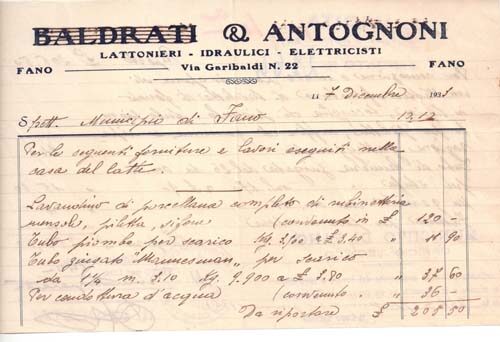 BALDRATI & ANTOGNONI
LATTONIERI - IDRAULICI - ELETTRICISTI
FANO Via Garibaldi N. 22 FANO
li 7 Dicembre 1933
Spett. Municipio di Fano 13.12
Per le seguenti forniture e lavori eseguiti nella
casa del latte.
Lavandino di porcellana completo di rubinetteria
mensole, piletta, sifone (convenuto in £ 120 -
Tubo piombo per scarico Kg. 3,500 a £ 3.40 " 11 90
Tubo ginsato "Mannesman" per scarico
da 1¼ m. 3.10 Kg. 9.900 a £ 3.80 " 37 60
Per conduttura d'acqua (convenuto " 36 -
Da riportare £ 205 50